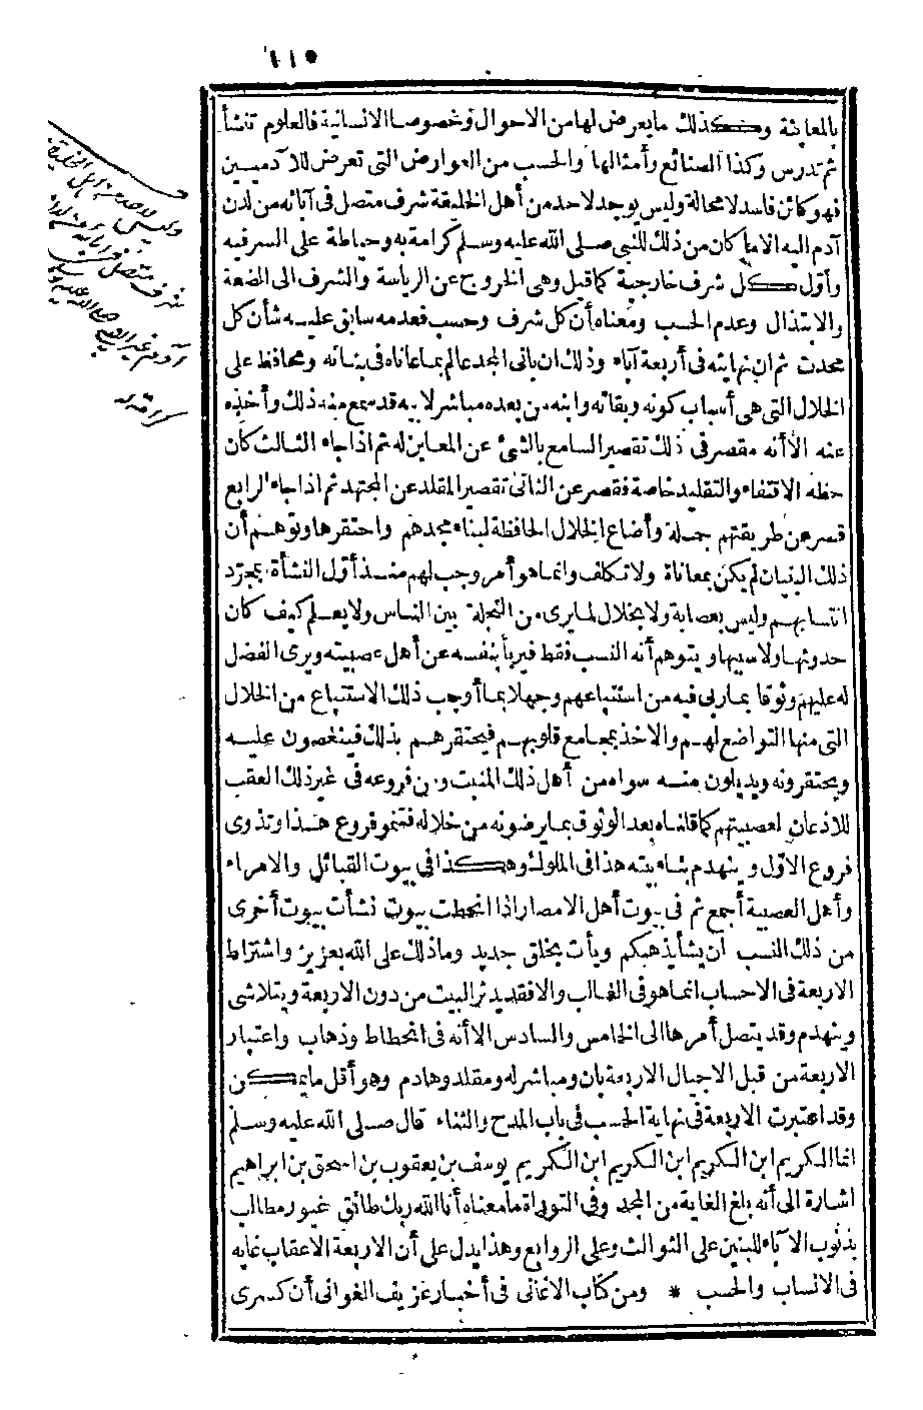 ١١٥
بالمعاينة وكذلك ما يعرض لها من الاحوال وخصوصا الانسانية فالعلوم تنشأ
ثم تدرس وكذا الصنائع وأمثالها والحسب من العوارض التى تعرض للآدميين
فهو كائن فاسد لا محالة وليس يوجد لاحد من أهل الخليقة شرف متصل فى آبائه من لدن
آدم اليه الا ما كان من ذلك للنبى صلى الله عليه وسلم كرامة به وحياطة على السر فيه
وأول كل شرف خارجية كما قيل وهى الخروج عن الرياسة والشرف الى الضعة
والابتذال وعدم الحسب ومعناه أن كل شرف وحسب فعدمه سابق عليه شأن كل
محدث ثم ان نهايته فى أربعة آباء وذلك ان بانى المجد عالم بما عاناه فى بنائه ومحافظ على
الخلال التى هى أسباب كونه وبقائه وابنه من بعده مباشر لابيه قد سمع منه ذلك وأخذه
عنه الا أنه مقصر فى ذلك تقصير السامع بالشئ عن المعاين له ثم اذا جاء الثالث كان
حظه الاقتفاء والتقليد خاصة فقصر عن الثانى تقصير المقلد عن المجتهد ثم اذا جاء الرابع
قصر عن طريقتهم جملة وأضاع الخلال الحافظة لبناء مجدهم واحتقرها وتوهم أن
ذلك البنيان لم يكن بمعاناة ولا تكلف وانما هو أمر وجب لهم منذ أول النشأة بمجرّد
انتسابهم وليس بعصابة ولا بخلال لما يرى من التجلة بين الناس ولا يعلم كيف كان
حدوثها ولا سببها ويتوهم أنه النسب فقط فيربأ بنفسه عن أهل عصبيته ويرى الفضل
له عليهم وثوقا بما ربى فيه من استتباعهم وجهلا بما أوجب ذلك الاستتباع من الخلال
التى منها التواضع لهم والاخذ بمجامع قلوبهم فيحتقرهم بذلك فينغصون عليه
ويحتقرونه ويديلون منه سواه من أهل ذلك المنبت ومن فروعه فى غير ذلك العقب
للاذعان لعصبيتهم كما قلناه بعد الوثوق بما يرضونه من خلاله فتنمو فروع هذا وتذوى
فروع الاوّل وينهدم بناء بيته هذا فى الملوك وهكذا فى بيوت القبائل والامراء
وأهل العصبية أجمع ثم فى بيوت أهل الامصار اذا انحطت بيوت نشأت بيوت أخرى
من ذلك النسب ان يشأ يذهبكم ويأت بخلق جديد وما ذلك على الله بعزيز واشتراط
الاربعة فى الاحساب انما هو فى الغالب والا فقد يدثر البيت من دون الاربعة ويتلاشى
وينهدم وقد يتصل أمرها الى الخامس والسادس الا أنه فى انحطاط وذهاب واعتبار
الاربعة من قبل الاجيال الاربعة بان ومباشر له ومقلد وهادم وهو أقل ما يمكن
وقد اعتبرت الاربعة فى نهاية الحسب فى باب المدح والثناء قال صلى الله عليه وسلم
انما الكريم ابن الكريم ابن الكريم ابن الكريم يوسف بن يعقوب بن اسحق بن ابراهيم
اشارة الى أنه بلغ الغاية من المجد وفى التوراة ما معناه أنا الله ربك طائق غيور مطالب
بذنوب الآباء للبنين على الثوالث وعلى الروابع وهذا يدل على أن الاربعة الاعقاب غاية
فى الانساب والحسب * ومن كتاب الاغانى فى أخبار عزيف الغوانى أن كسرى
وليس لاحد من اهل الخليقة
شرف متصل فى آبائه من لدن
آدم غير النبى صلى الله عليه وسلم